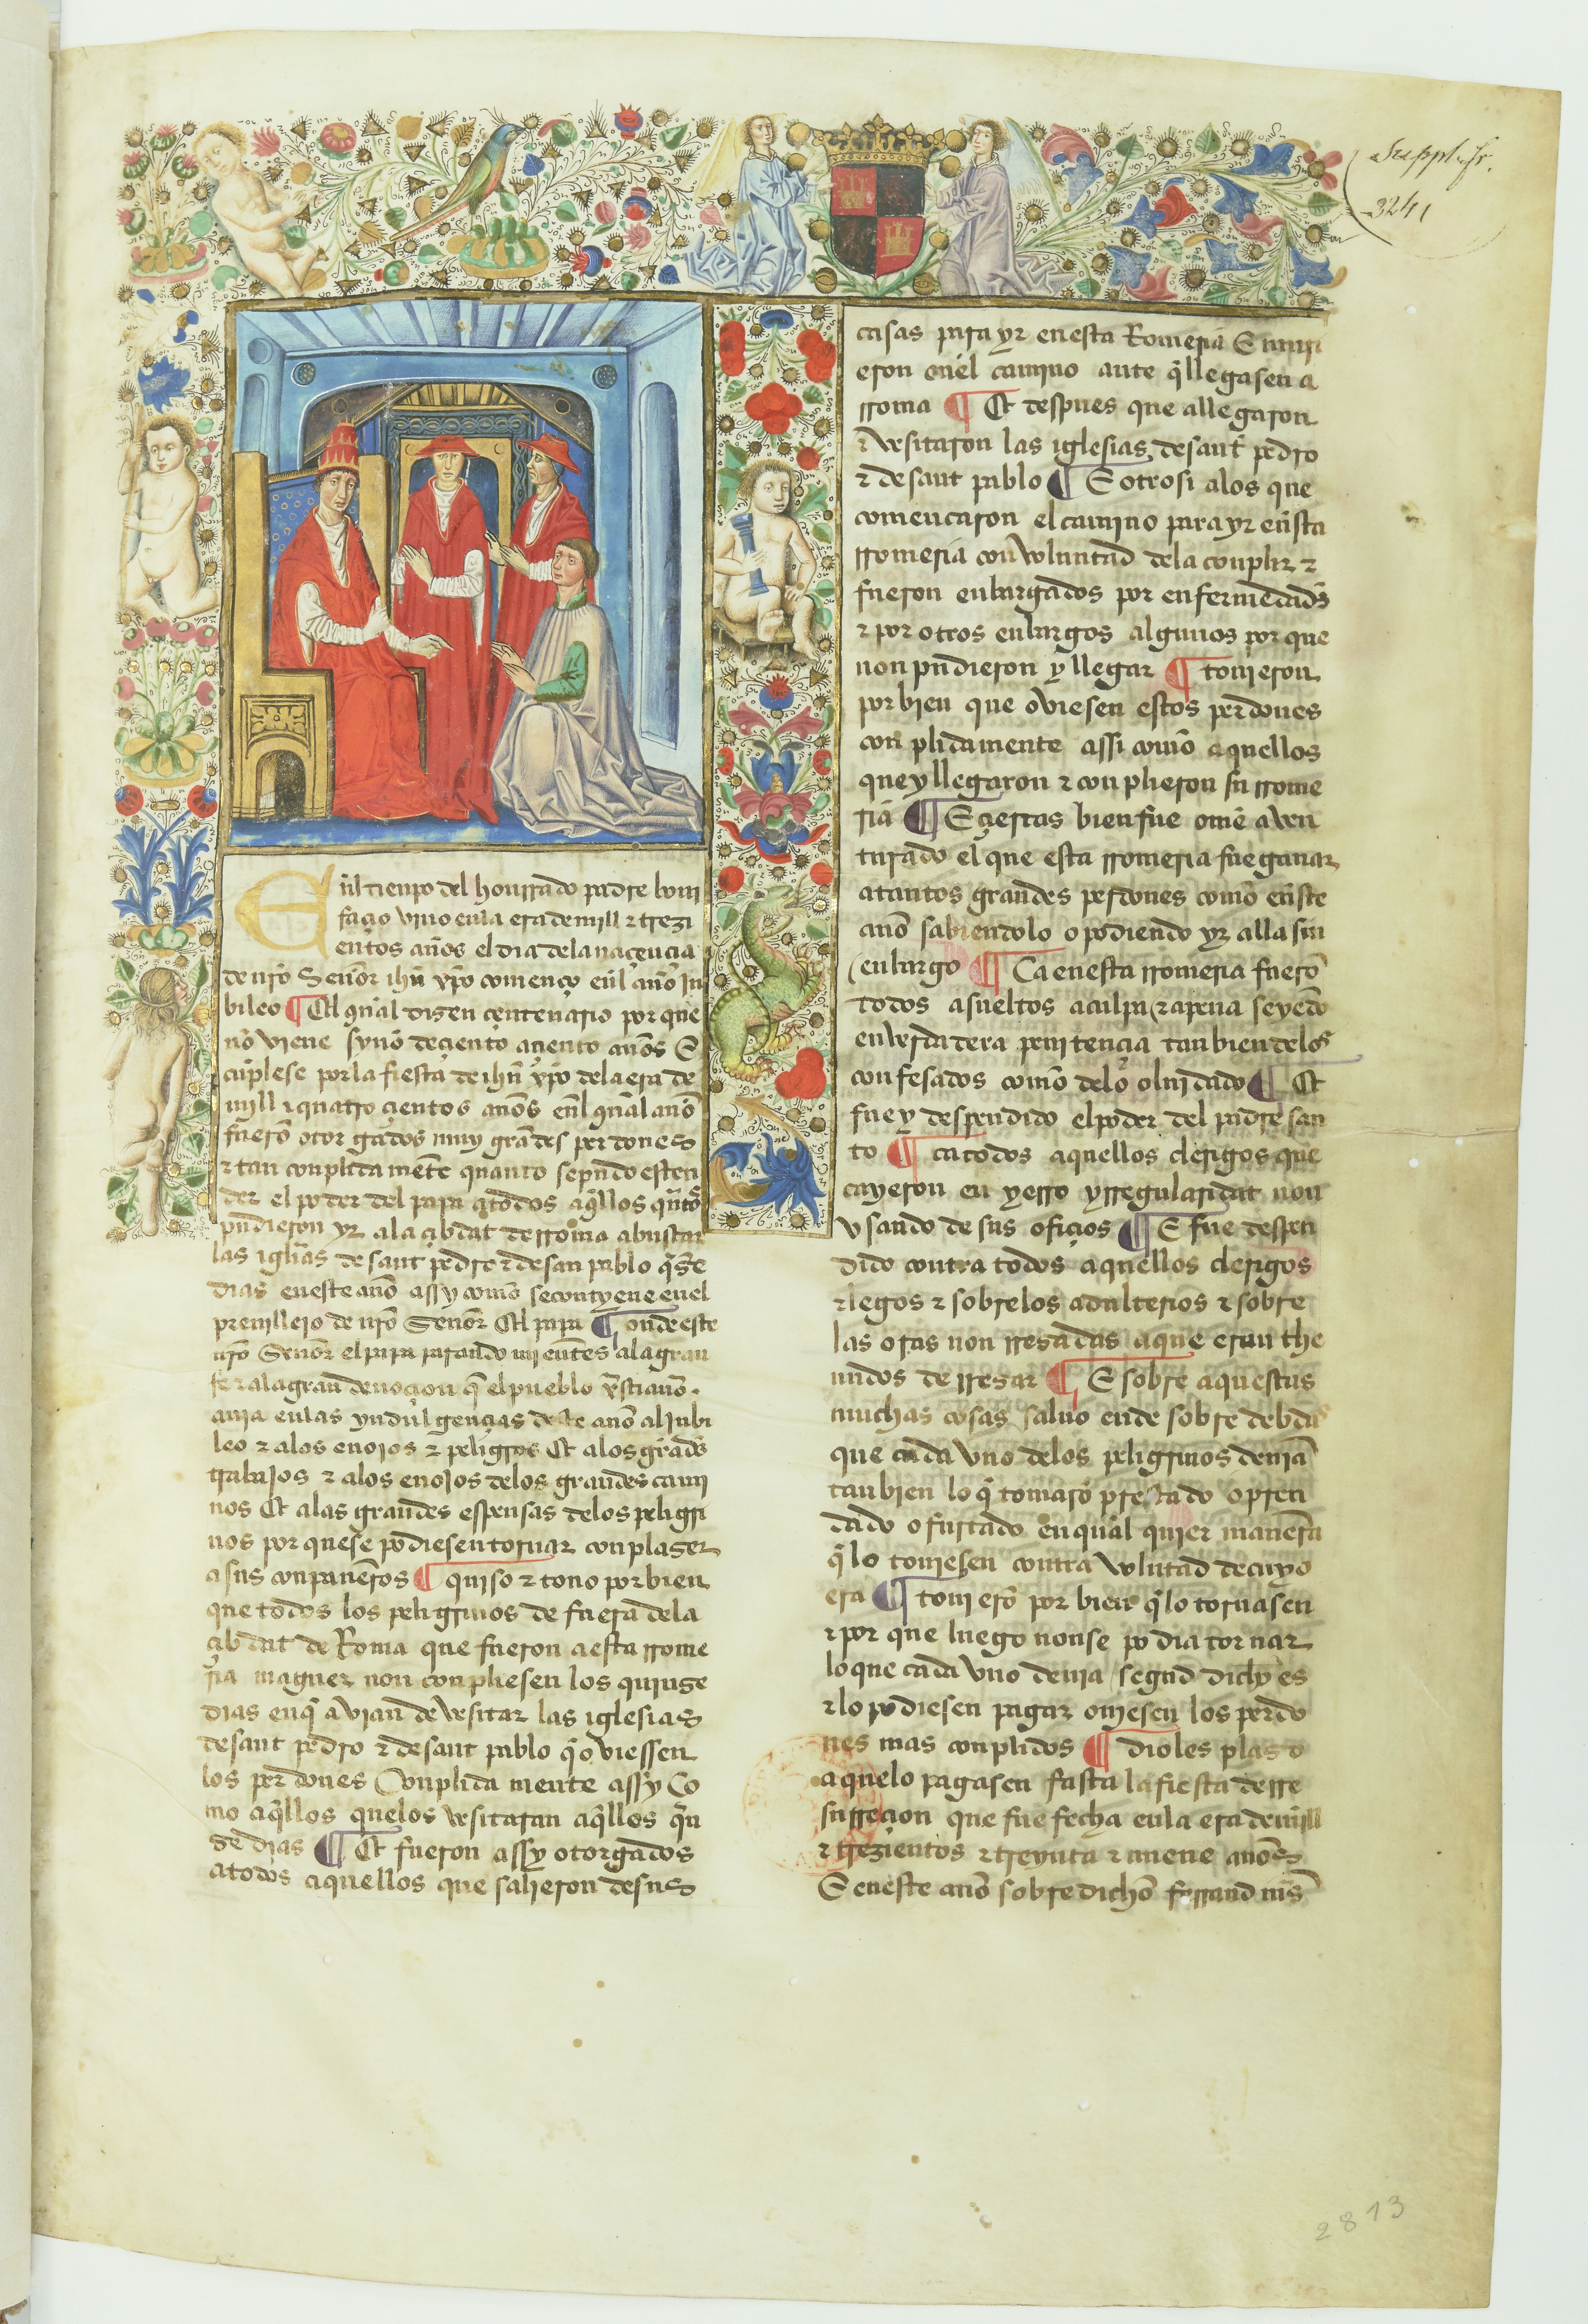 Suppl. fr.
3241
Enl tienpo del honrrado padre boni
façio vino en la era de mill ⁊ trezi
entos años el dia dela naçençia
de nro Señor ihu xpo començo enl año Ju
bileo ¶ El qual disen çentenario por que
nō viene synō de çiento a çiento años E
cuplese por la fiesta de ihu xpo dela era de
mill ⁊ quatro çientos años enl qual año
fuerō otorgados muy grādes perdones
⁊ tan conplida mēte quanto se pudo esten
der el poder del papa a todos aq̄llos q̄ntos
pudieron yr ala çibdat de rroma a buscar
las igl̄ias de sant pedro ⁊ de san pablo q̄nse
dias en este año assy como se contyene en el
preuillejo de nro Señor El papa ¶ onde este
nro Señor el papa parando mientes ala gran
fe ⁊ ala gran deuoçion q̄ el pueblo xr̄stiano
auia en las yndulgençias deste año al jubi
leo ⁊ alos enojos ⁊ peligros Et alos grādes
trabajos ⁊ alos enojos delos grandes cami
nos Et alas grandes espensas delos peligri
nos por que se podiesen tornar con plaser
a sus conpañeros ¶ quiso ⁊ touo por bien
que todos los peligrinos de fuera dela
çibdat de Roma que fueron a esta rrome
ria maguer non conpliesen los quinse
dias en q̄ avian de vesitar las iglesias
de sant pedro ⁊ de sant pablo q̄ oviessen
los perdones Conplida mente assy Co
mo aq̄llos que los vesitaran aq̄llos quī
se dias ¶ Et fueron assy otorgados
a todos aquellos que salieron de sus
casas para yr en esta Romeria E muri
eron en el camino ante q̄ llegasen a
rroma ¶ Et despues que allegaron
⁊ vesitaron las iglesias de sant pedro
⁊ de sant pablo ¶ E otrosi alos que
comencaron el camino para yr en sta
rromeria con voluntad dela conplir ⁊
fueron enbargados por enfermedades
⁊ por otros enbargos algunos por que
non pudieron y llegar ¶ touieron
por bien que oviesen estos perdones
conplidamente assi como aquellos
que y llegaron ⁊ conplieron su rrome
ria ¶ E çiertas bien fue ome aven
turado el que esta rromeria fue ganar
a tantos grandes perdones como en ste
año sabiendolo o podiendo yr alla sin
enbargo ¶ Ca en esta rromeria fuerō
todos asueltos a culpa ⁊ a pena seyēdo
en verdadera penitençia tanbien delos
confesados como delo oluidado ¶ Et
fue y despendido el poder del padre san
to ¶ ca todos aquellos clerigos que
cayeron en yerro yrregularidat non
vsando de sus ofiçios ¶ E fue despen
dido contra todos aquellos clerigos
⁊ legos ⁊ sobre los adulterios ⁊ sobre
las oras non rresadas a que eran the
nudos de rresar ¶ E sobre aquestas
muchas cosas saluo ende sobre debdas
que cada vno delos peligrinos deuiā
tanbien lo q̄ tomarō prestado o pren
dado o furtado en qual quier manera
q̄ lo touiesen contra volutad de cuyo
era ¶ touierō por bien q̄ lo tornasen
⁊ por que luego non se podia tornar
lo que cada vno deuia segud dicho es
⁊ lo podiesen pagar ouiesen los perdo
nes mas conplidos ¶ dioles plaso
a que lo pagasen fasta la fiesta de rre
surreçion que fue fecha en la era de mill
⁊ trezientos ⁊ treynta ⁊ nueue años
E en este año sobre dicho ferrand mīs
2813